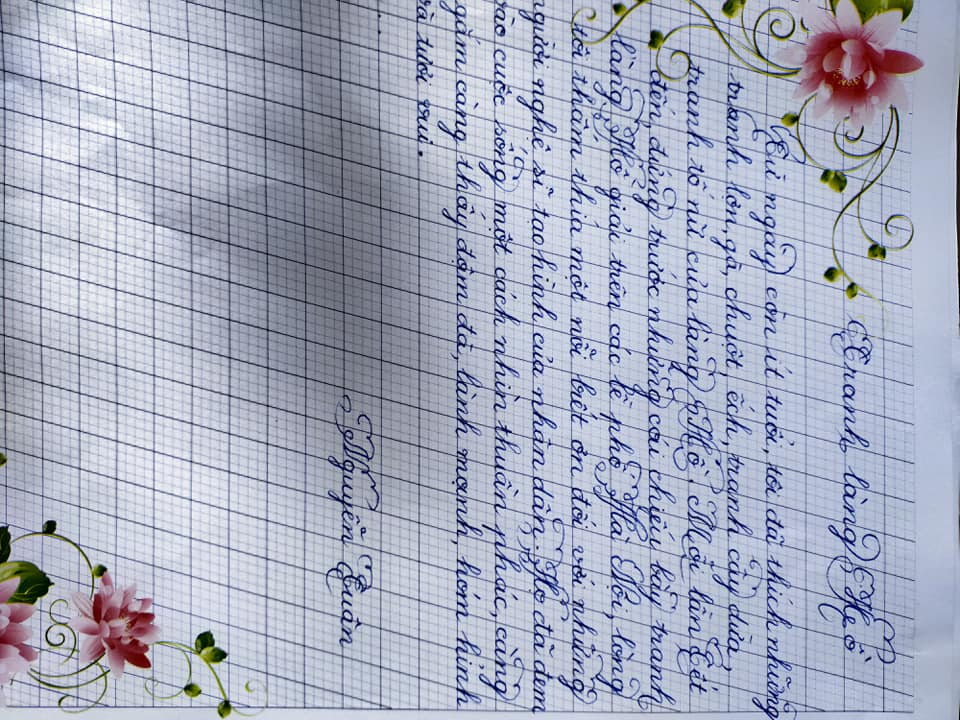 Tranh làng Hồ
Từ ngày còn ít tuổi, tôi đã thích những
tranh lợn, gà, chuột, ếch, tranh cây dừa,
tranh tố nữ của làng Hồ. Mỗi lần Tết
đến, đứng trước những cái chiếu bầy tranh
làng Hồ giải trên các lề phố Hà Nội, lòng
tôi thấm thía một nỗi biết ơn đối với những
người nghệ sĩ tạo hình của nhân dân. Họ đã đem
vào cuộc sống một cách nhìn thuần phác, càng
ngắm càng thấy đậm đà, lành mạnh, hóm hỉnh
và tươi vui.
Nguyễn Tuân